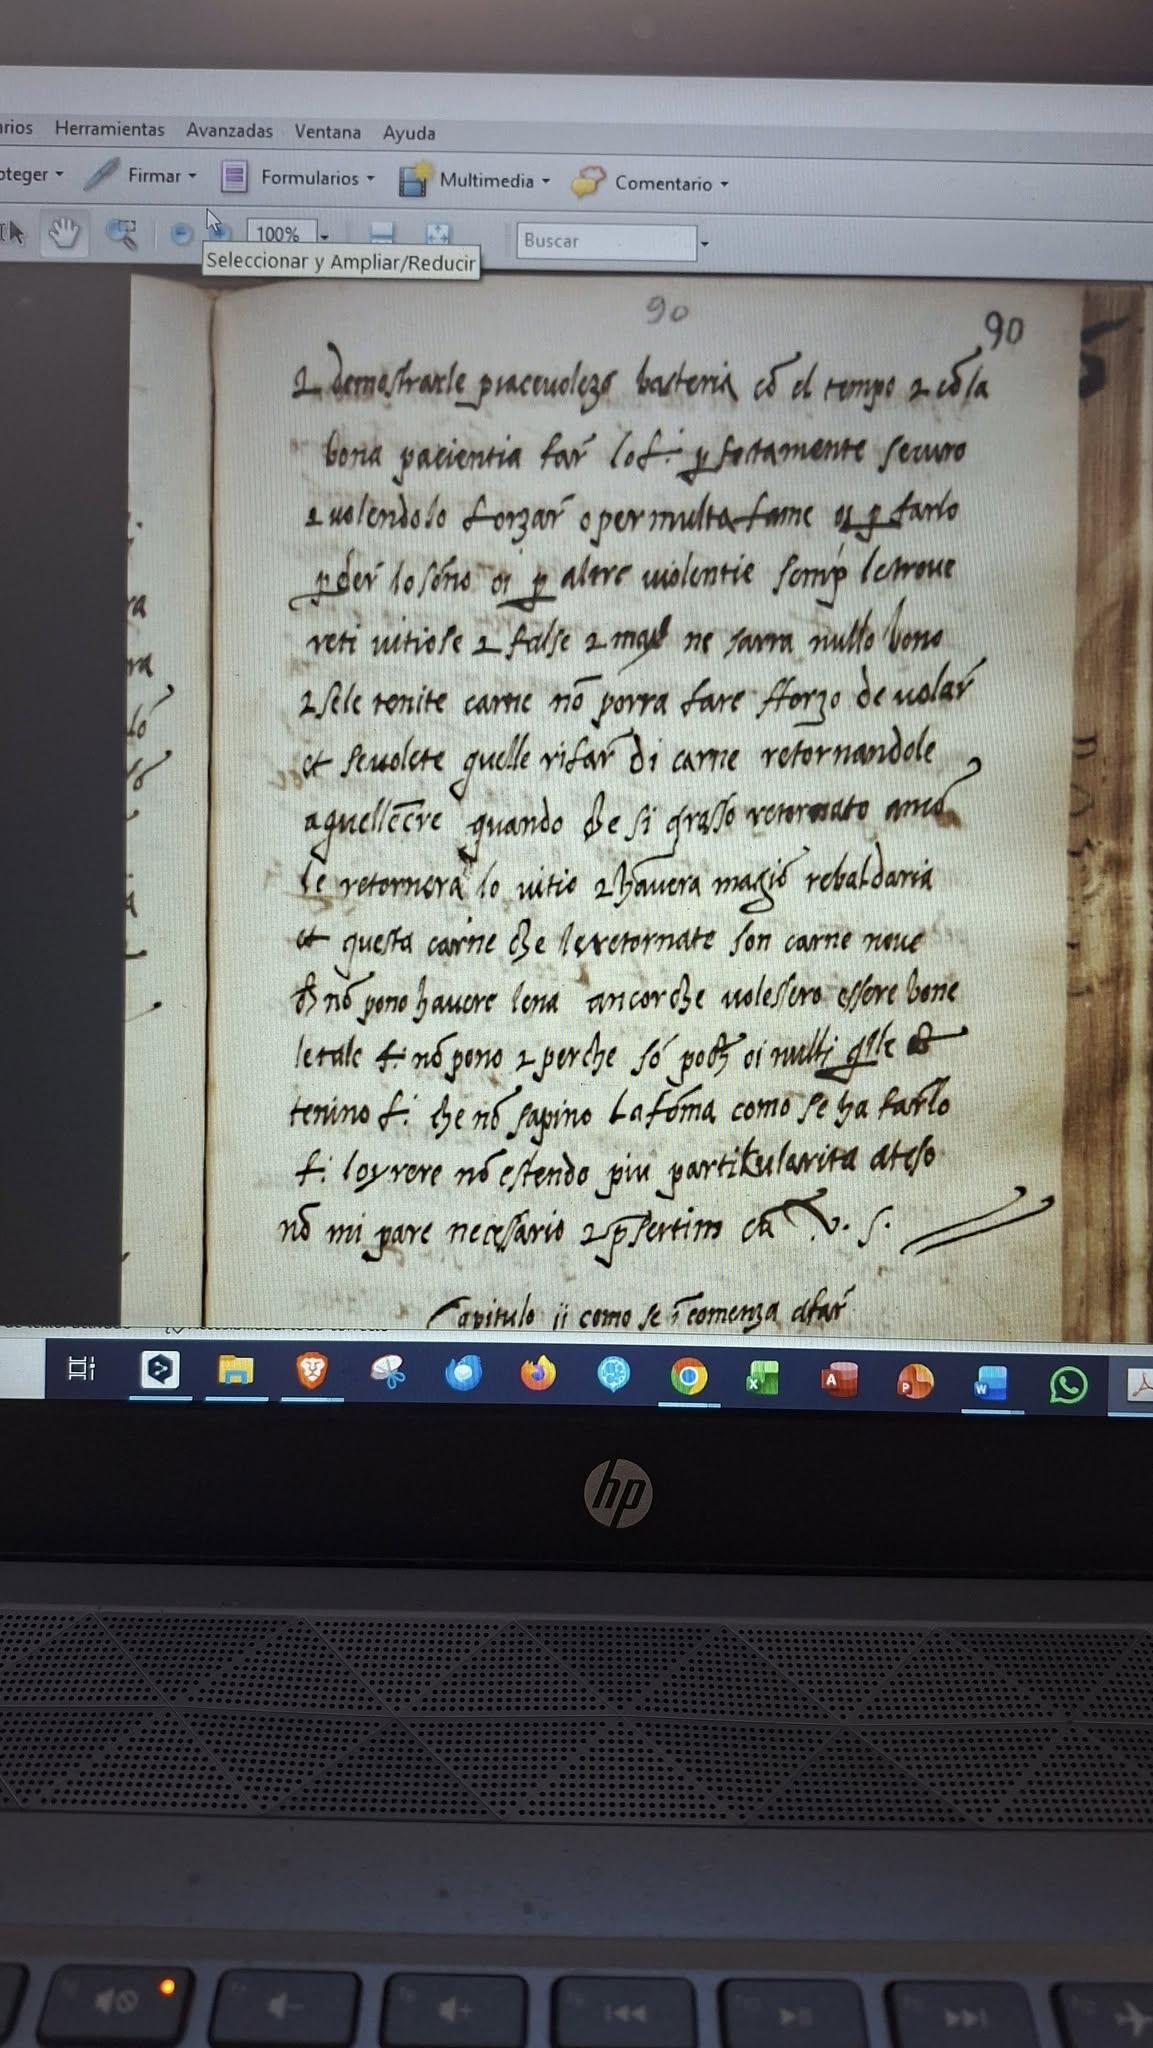 arios Herramientas Avanzadas Ventana Ayuda
oteger Firmar Formularios Multimedia Comentario
100% Buscar
Seleccionar y Ampliar/Reducir
90
90
⁊ demostrarle piaceuoleza basteria cō el tempo ⁊ cō la
bona pacientia far lo f: ꝑfectamente securo
⁊ uolendolo forzar o per multa fame oi ꝑ farlo
ꝑder lo sōno oi ꝑ altre uiolentie semp̄ le troue
reti uitiose ⁊ false ⁊ mai ne sarra nullo bono
⁊ se le tenite carne nō porra fare sforzo de uolar
et se uolete quelle rifar di carne retornandole
quando che si grasso retornato
le retornera lo uitio ⁊ hauera magiō rebaldaria
et questa carne che le retornate son carne noue
nō pono hauere lena ancorche uolessero essere bone
le tale f: nō pono ⁊ perche sō oi nulli
tenino f: che nō sapino la forma como se ha farlo
f: nō estendo piu partikularita ateso
nō mi pare necessario ⁊ p̄sertim V. S.
Capitulo ii como se īcomenza afar
hp